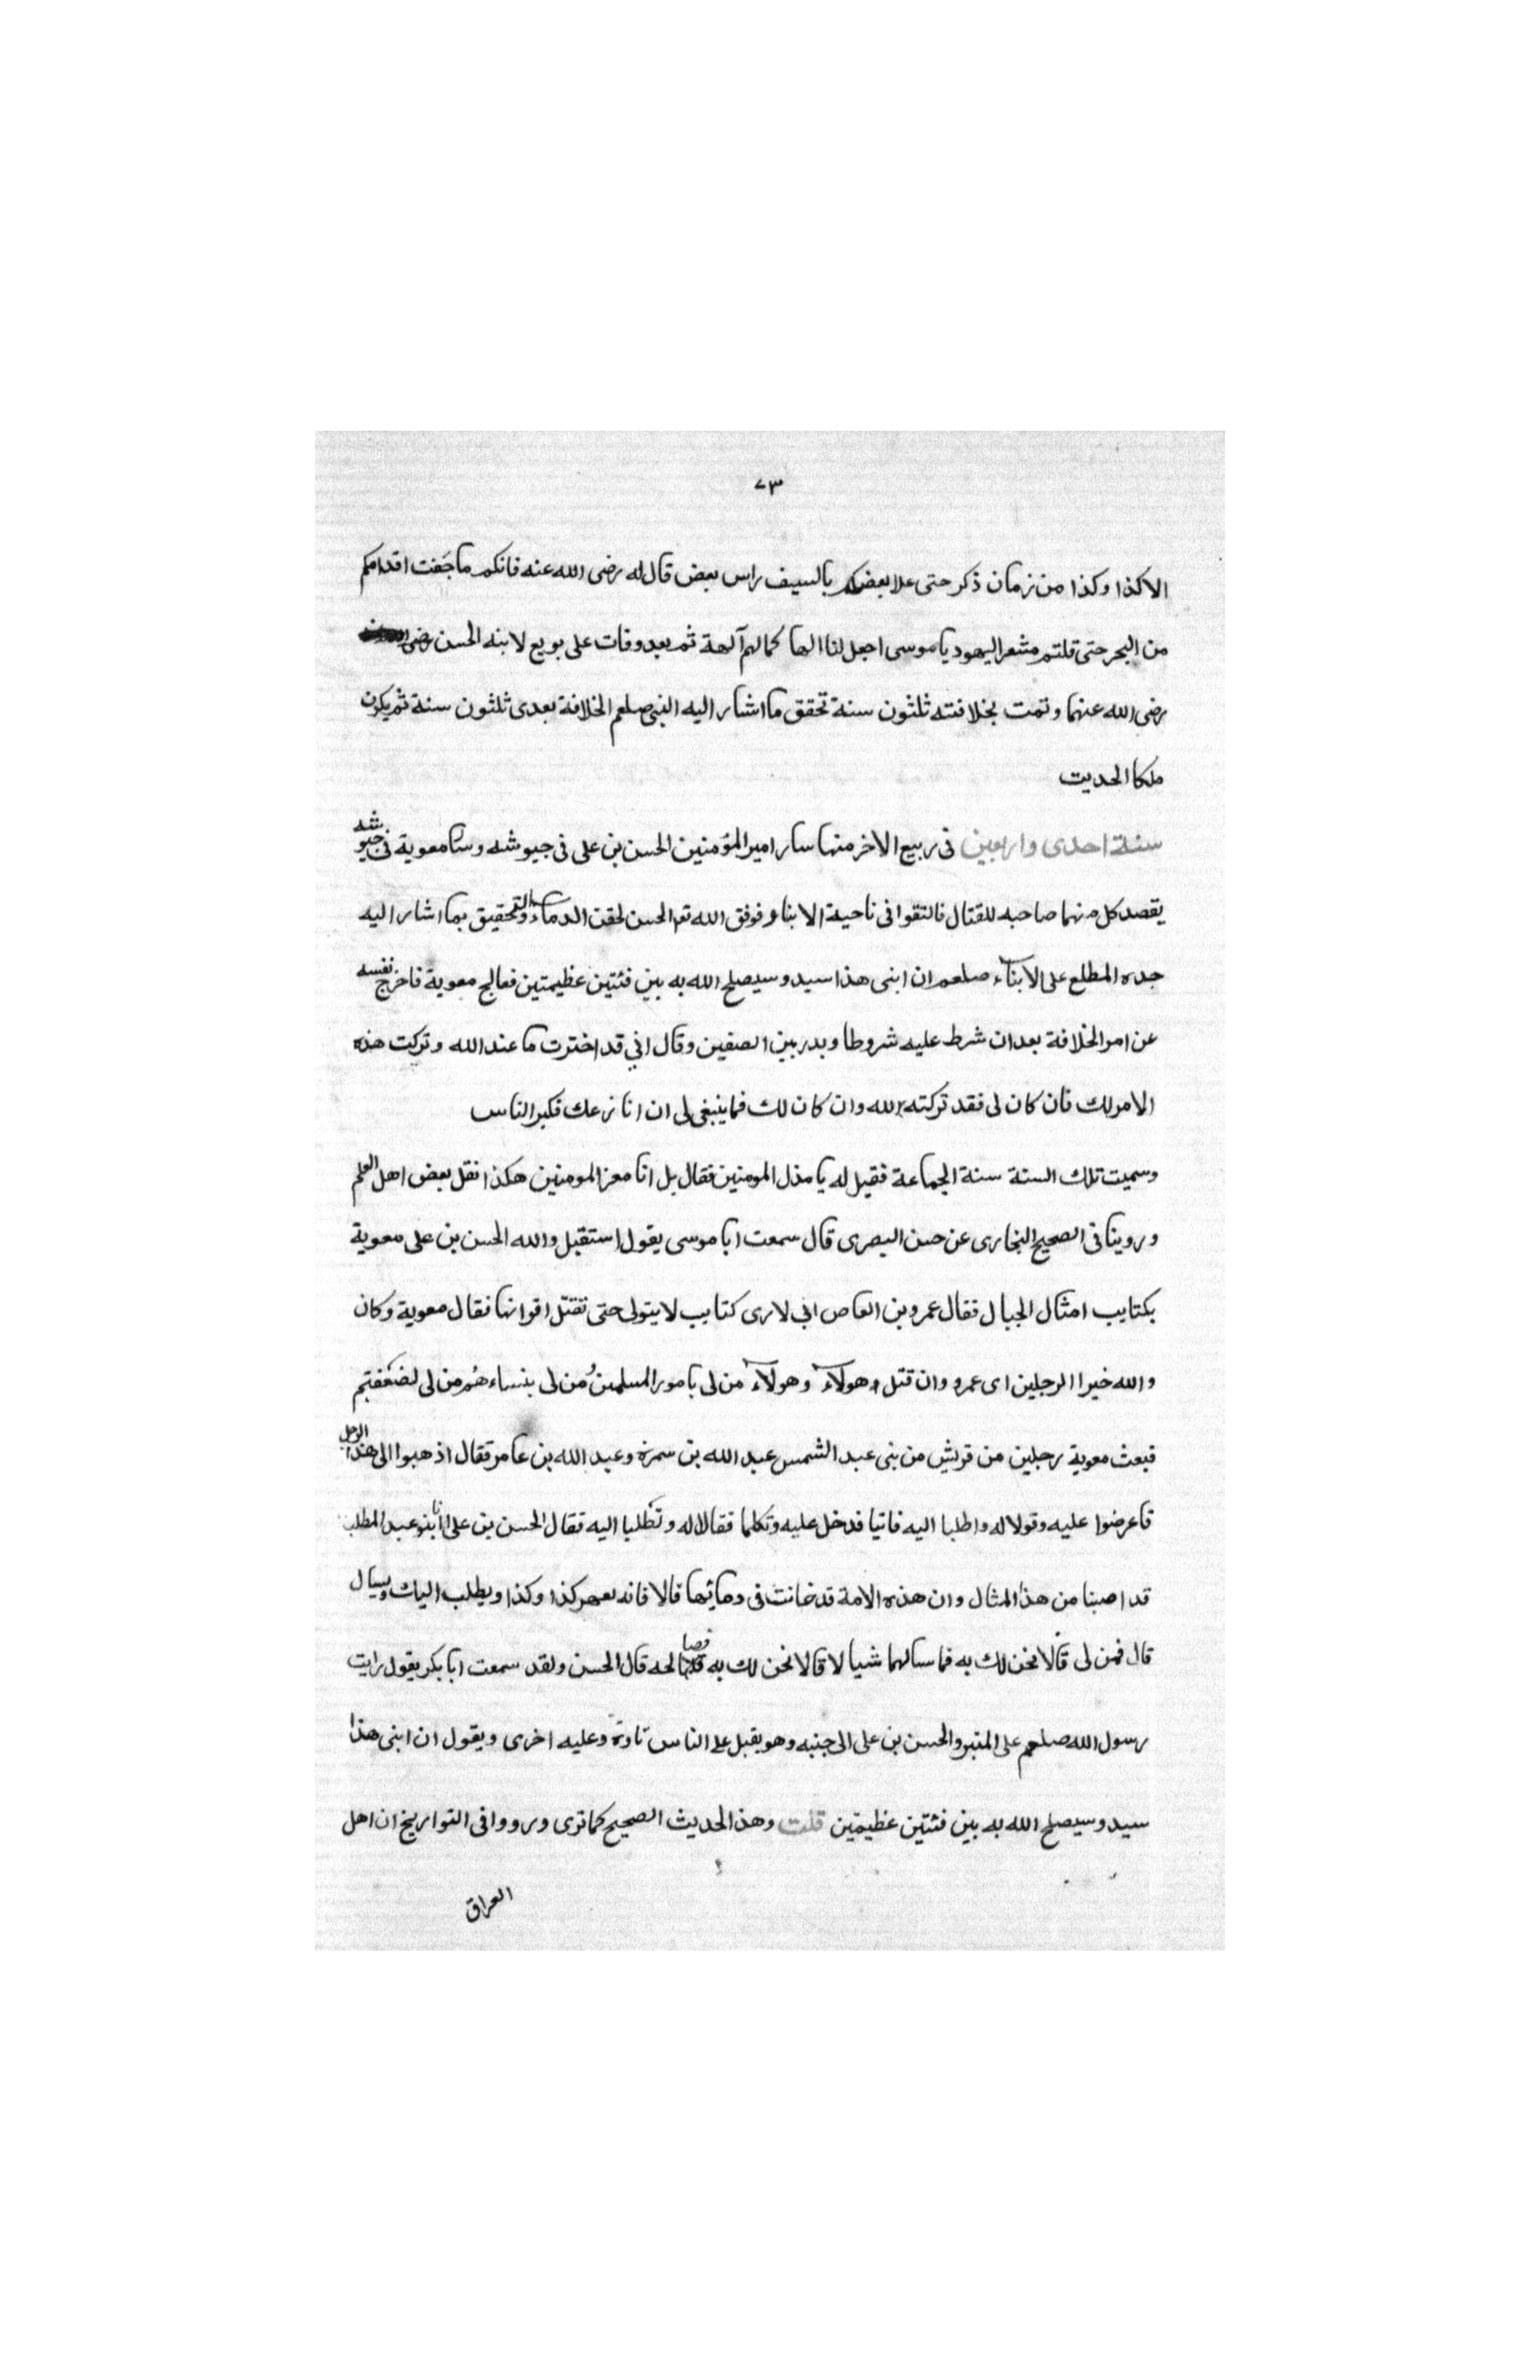 ٧٣
الا كذا وكذا من زمان ذكر حتى علا بعضكم بالسيف راس بعض قال له رضى الله عنه فانكم ما جفت اقدامكم
من البحر حتى قلتم مشعر اليهود يا موسى اجعل لنا الها كما لهم آلهة ثم بعد وفات على بويع لابنه الحسن رضى
رضى الله عنهما وتمت بخلافته ثلثون سنة تحقق ما اشار اليه النبى صلعم الخلافة بعدى ثلثون سنة ثم يكون
ملكا الحديث
سنة احدى واربعين فى ربيع الاخر منها سار امير المؤمنين الحسن بن على فى جيوشه وسار معوية فى جيوشه
يقصد كل منهما صاحبه للقتال فالتقوا فى ناحية الابنار فوفق الله تع الحسن لحقن الدماء والتحقيق بما اشار اليه
جده المطلع على الابناء صلعم ان ابنى هذا سيد وسيصلح الله به بين فئتين عظيمتين فعالج معوية فاخرج نفسه
عن امر الخلافة بعد ان شرط عليه شروطا وبدر بين الصفين وقال انى قد اخترت ما عند الله وتركت هذه
الامر لك فان كان لى فقد تركته لله وان كان لك فما ينبغى لى ان انازعك فكبر الناس
وسميت تلك السنة سنة الجماعة فقيل له يا مذل المومنين فقال بل انا معز المومنين هكذا نقل بعض اهل العلم
وروينا فى الصحيح البخارى عن حسن البصرى قال سمعت ابا موسى يقول استقبل والله الحسن بن على معوية
بكتايب امثال الجبال فقال عمرو بن العاص انى لارى كتايب لا يتولى حتى تقتل اقرانها فقال معوية وكان
والله خير الرجلين اى عمرو وان قتل هولاء وهولاء من لى بامور المسلمين من لى بنساءهم من لى لضعفتهم
فبعث معوية رجلين من قريش من بنى عبد الشمس عبد الله بن سمرة وعبد الله بن عامر فقال اذهبوا الى هذا الرجل
فاعرضوا عليه وقولا له واطلبا اليه فاتيا فدخل عليه وتكلما فقالا له وتطلبا اليه فقال الحسن بن على انا بنو عبد المطلب
قد اصبنا من هذا المثال وان هذه الامة قد خانت فى دمائها قالا فانه يعرض كذا وكذا ويطلب اليك ويسال
قال فمن لى قالا نحن لك به فما سالهما شيا الا قالا نحن لك به فصالحه قال الحسن ولقد سمعت ابا بكر يقول رايت
رسول الله صلعم على المنبر والحسن بن على الى جنبه وهو يقبل على الناس تارة وعليه اخرى ويقول ان ابنى هذا
سيد وسيصلح الله به بين فئتين عظيمتين قلت وهذا الحديث الصحيح كما ترى ورووا فى التواريخ ان اهل
العراق